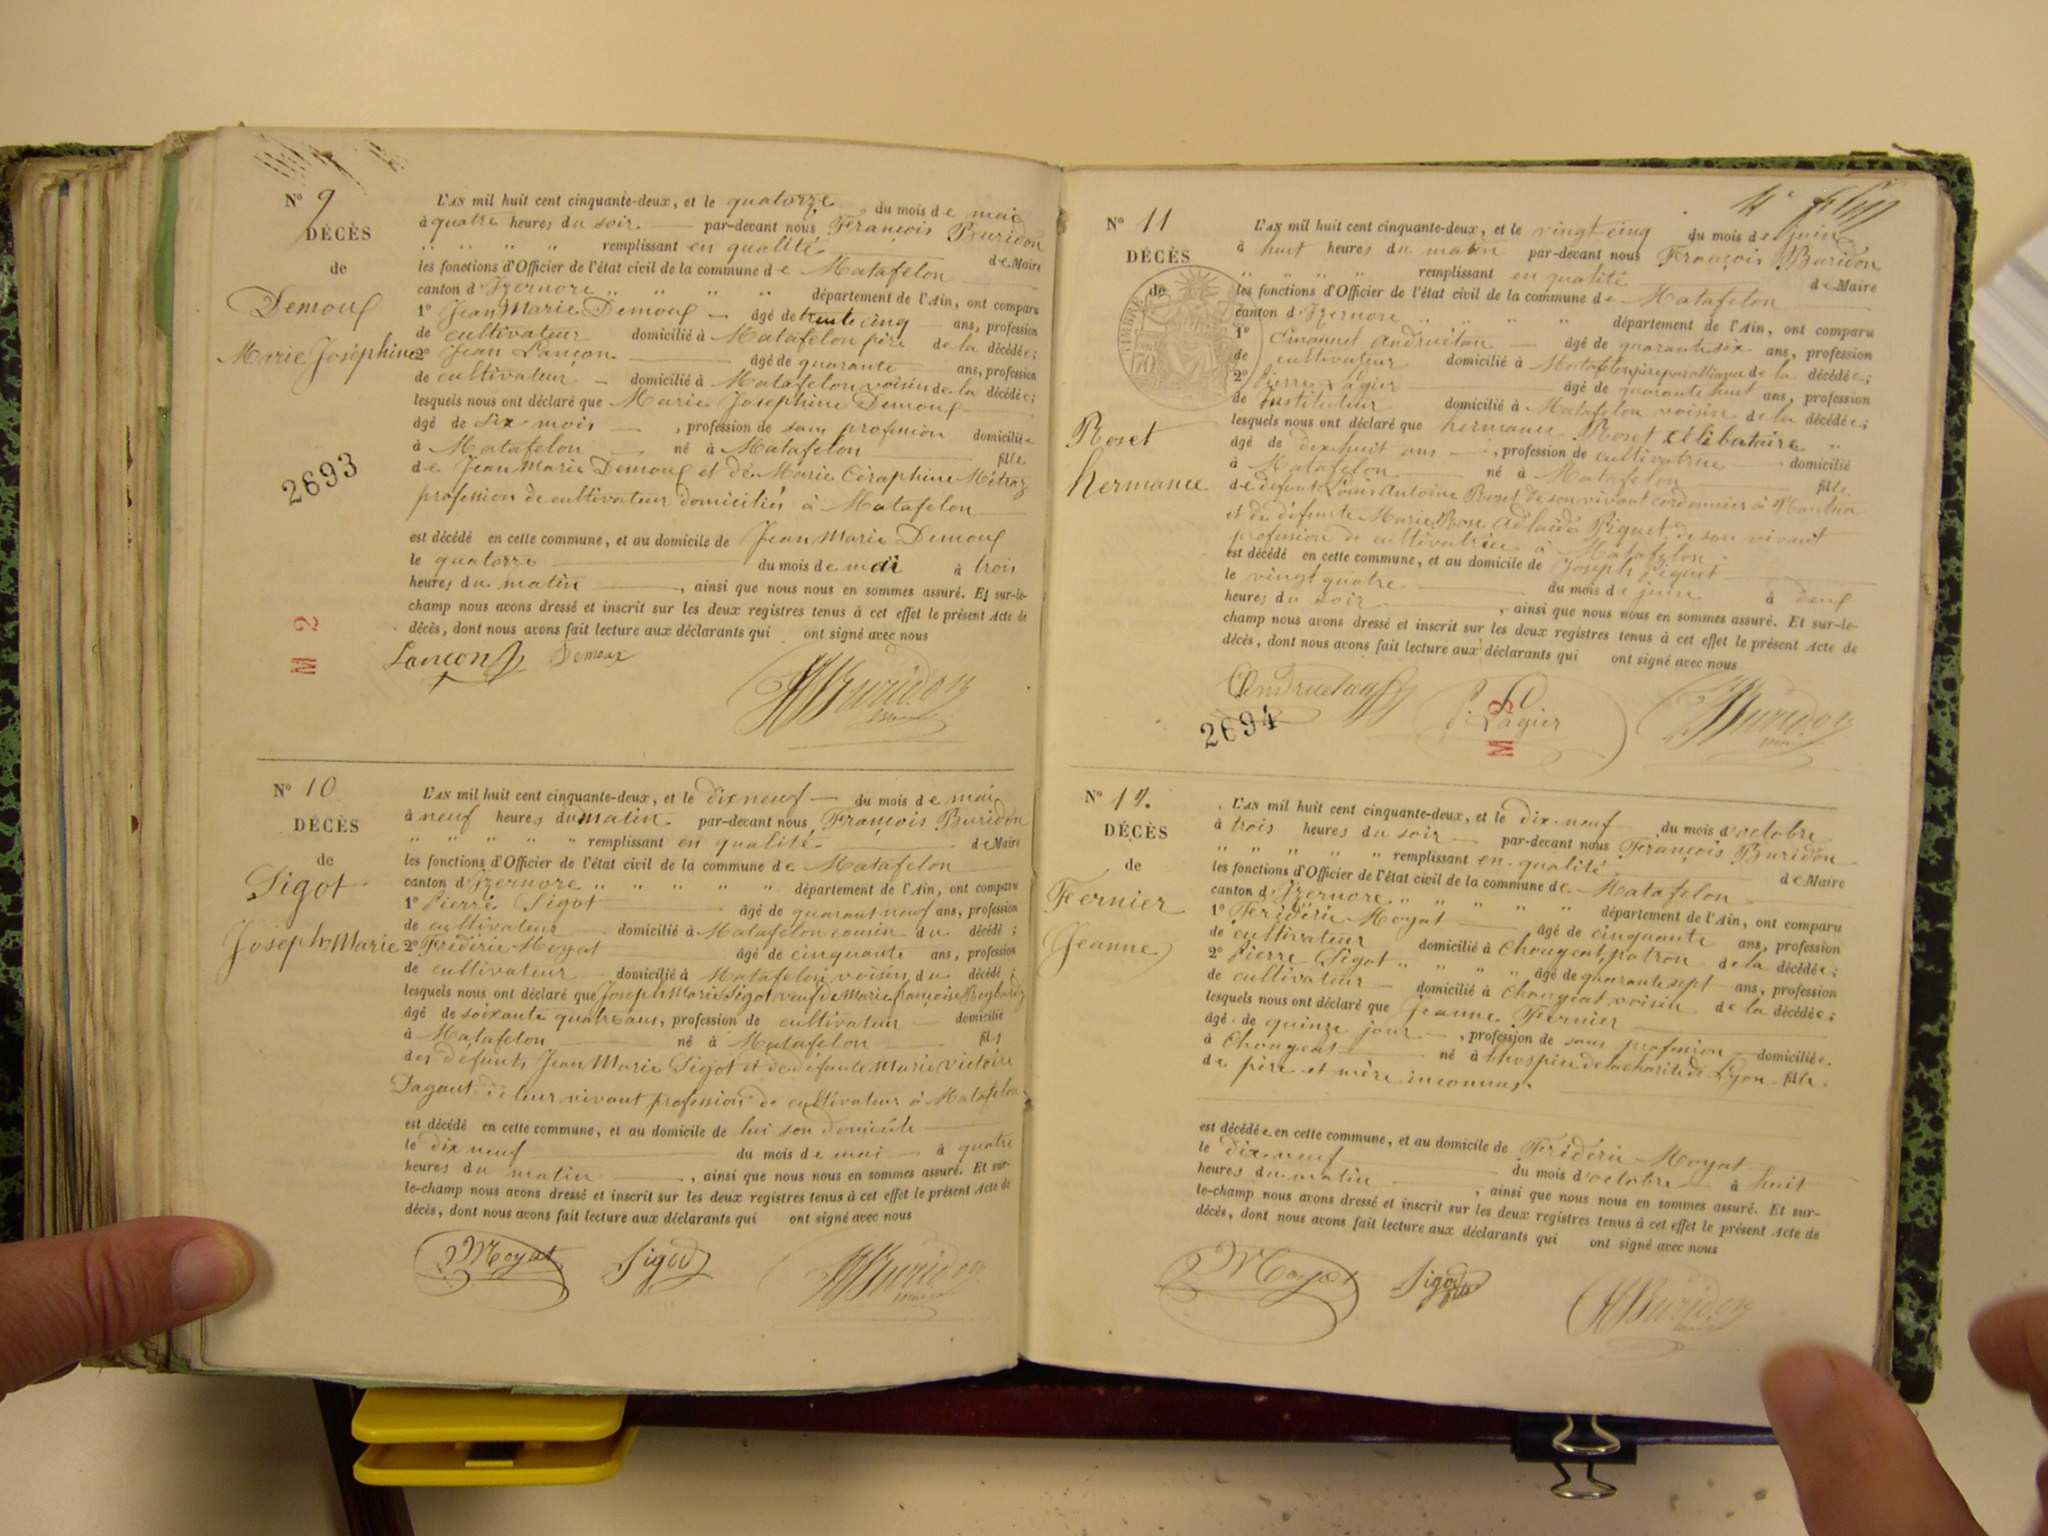 N° 9
DÉCÈS
de
Demoux
Marie Joséphine
2693
M 2
L'AN mil huit cent cinquante-deux, et le quatorze du mois de mai
à quatre heures du soir par-devant nous François Buridon
" " " " remplissant en qualité de Maire
les fonctions d'Officier de l'état civil de la commune de Matafelon
canton d'Izernore " " " " département de l'Ain, ont comparu
1° Jean Marie Demoux âgé de trente cinq ans, profession
de cultivateur domicilié à Matafelon père de la décédée;
2° Jean Lançon âgé de quarante ans, profession
de cultivateur domicilié à Matafelon voisin de la décédée;
lesquels nous ont déclaré que Marie Josephine Demoux
âgé de six mois , profession de sans profession domiciliée
à Matafelon né à Matafelon fille
de Jean Marie Demoux et de Marie Céraphine Métraz
profession de cultivateur domiciliés à Matafelon
est décédé en cette commune, et au domicile de Jean Marie Demoux
le quatorze du mois de mai à trois
heures du matin , ainsi que nous nous en sommes assuré. Et sur-le-
champ nous avons dressé et inscrit sur les deux registres tenus à cet effet le présent Acte de
décès, dont nous avons fait lecture aux déclarants qui ont signé avec nous
Lançon Demoux Buridon
N° 10
DÉCÈS
de
Sigot
Joseph Marie
L'AN mil huit cent cinquante-deux, et le dix neuf du mois de mai
à neuf heures du matin par-devant nous François Buridon
" " " " " remplissant en qualité de Maire
les fonctions d'Officier de l'état civil de la commune de Matafelon
canton d'Izernore " " " " " département de l'Ain, ont comparu
1° Pierre Sigot âgé de quarant neuf ans, profession
de cultivateur domicilié à Matafelon cousin du décédé;
2° Frédéric Moyat âgé de cinquante ans, profession
de cultivateur domicilié à Matafelon voisin du décédé;
lesquels nous ont déclaré que Joseph Marie Sigot veuf de Marie françoise
âgé de soixante quatre ans, profession de cultivateur domicilié
à Matafelon né à Matafelon fils
des défunts Jean Marie Sigot et de défunte Marie victoire
de leur vivant profession de cultivateur à Matafelon
est décédé en cette commune, et au domicile de lui son domicile
le dix neuf du mois de mai à quatre
heures du matin , ainsi que nous nous en sommes assuré. Et sur-
le-champ nous avons dressé et inscrit sur les deux registres tenus à cet effet le présent Acte de
décès, dont nous avons fait lecture aux déclarants qui ont signé avec nous
Moyat Sigot Buridon
N° 11
DÉCÈS
de
TIMBRE
70
Roset
hermance
L'AN mil huit cent cinquante-deux, et le vingt cinq du mois de juin
à huit heures du matin par-devant nous François Buridon
" " " " remplissant en qualité de Maire
les fonctions d'Officier de l'état civil de la commune de Matafelon
canton d'Izernore " " " " " département de l'Ain, ont comparu
1° Emanuel Andruetan âgé de quarante six ans, profession
de cultivateur domicilié à Matafelon père par alliance de la décédée;
2° Pierre Lagier âgé de quarante huit ans, profession
de instituteur domicilié à Matafelon voisin de la décédée;
lesquels nous ont déclaré que hermance Roset célibataire
âgé de dix huit ans , profession de cultivatrice domicilié
à Matafelon né à Matafelon fille
de défunt Louis Antoine Roset de son vivant cordonnier à Nantua
et de défunte Marie Rose Adélaïde Piquet, de son vivant
profession de cultivatrice à Matafelon
est décédé en cette commune, et au domicile de Joseph Piquet
le vingt quatre du mois de juin à deux
heures du soir , ainsi que nous nous en sommes assuré. Et sur-le-
champ nous avons dressé et inscrit sur les deux registres tenus à cet effet le présent Acte de
décès, dont nous avons fait lecture aux déclarants qui ont signé avec nous
Andruetan Lagier Buridon
2694
M 2
N° 12.
DÉCÈS
de
Fernier
Jeanne
L'AN mil huit cent cinquante-deux, et le dix-neuf du mois d'octobre
à trois heures du soir par-devant nous François Buridon
" " " " " remplissant en qualité de Maire
les fonctions d'Officier de l'état civil de la commune de Matafelon
canton d'Izernore " " " " " département de l'Ain, ont comparu
1° Frédéric Moyat âgé de cinquante ans, profession
de cultivateur domicilié à Chougeat, patron de la décédée;
2° Pierre Sigot " " " " âgé de quarante sept ans, profession
de cultivateur domicilié à Chougeat voisin de la décédée;
lesquels nous ont déclaré que Jeanne Fernier
âgé de quinze jour , profession de sans profession domiciliée
à Chougeat né à l'hospice de la charité de Lyon fille
de père et mère inconnus.
est décédée en cette commune, et au domicile de Frédéric Moyat
le dix-neuf du mois d'octobre à huit
heures du matin , ainsi que nous nous en sommes assuré. Et sur-
le-champ nous avons dressé et inscrit sur les deux registres tenus à cet effet le présent Acte de
décès, dont nous avons fait lecture aux déclarants qui ont signé avec nous
Moyat Sigot Buridon